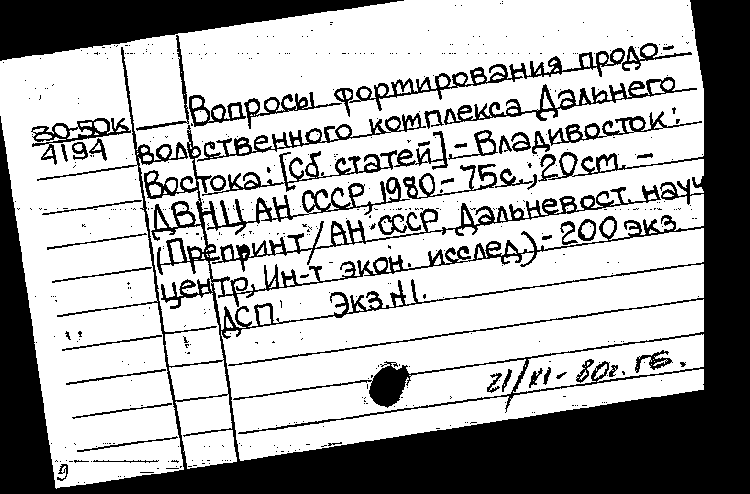 Вопросы формирования продо-
80-50к вольственного комплекса Дальнего
4194 Востока: [Сб. статей]. - Владивосток:
ДВНЦ АН СССР, 1980. - 75с.; 20см. -
(Препринт/АН СССР, Дальневост. науч
центр, Ин-т экон. исслед.). - 200 экз.
ДСП. Экз.N1.
21/XI - 80г. ГБ.
9